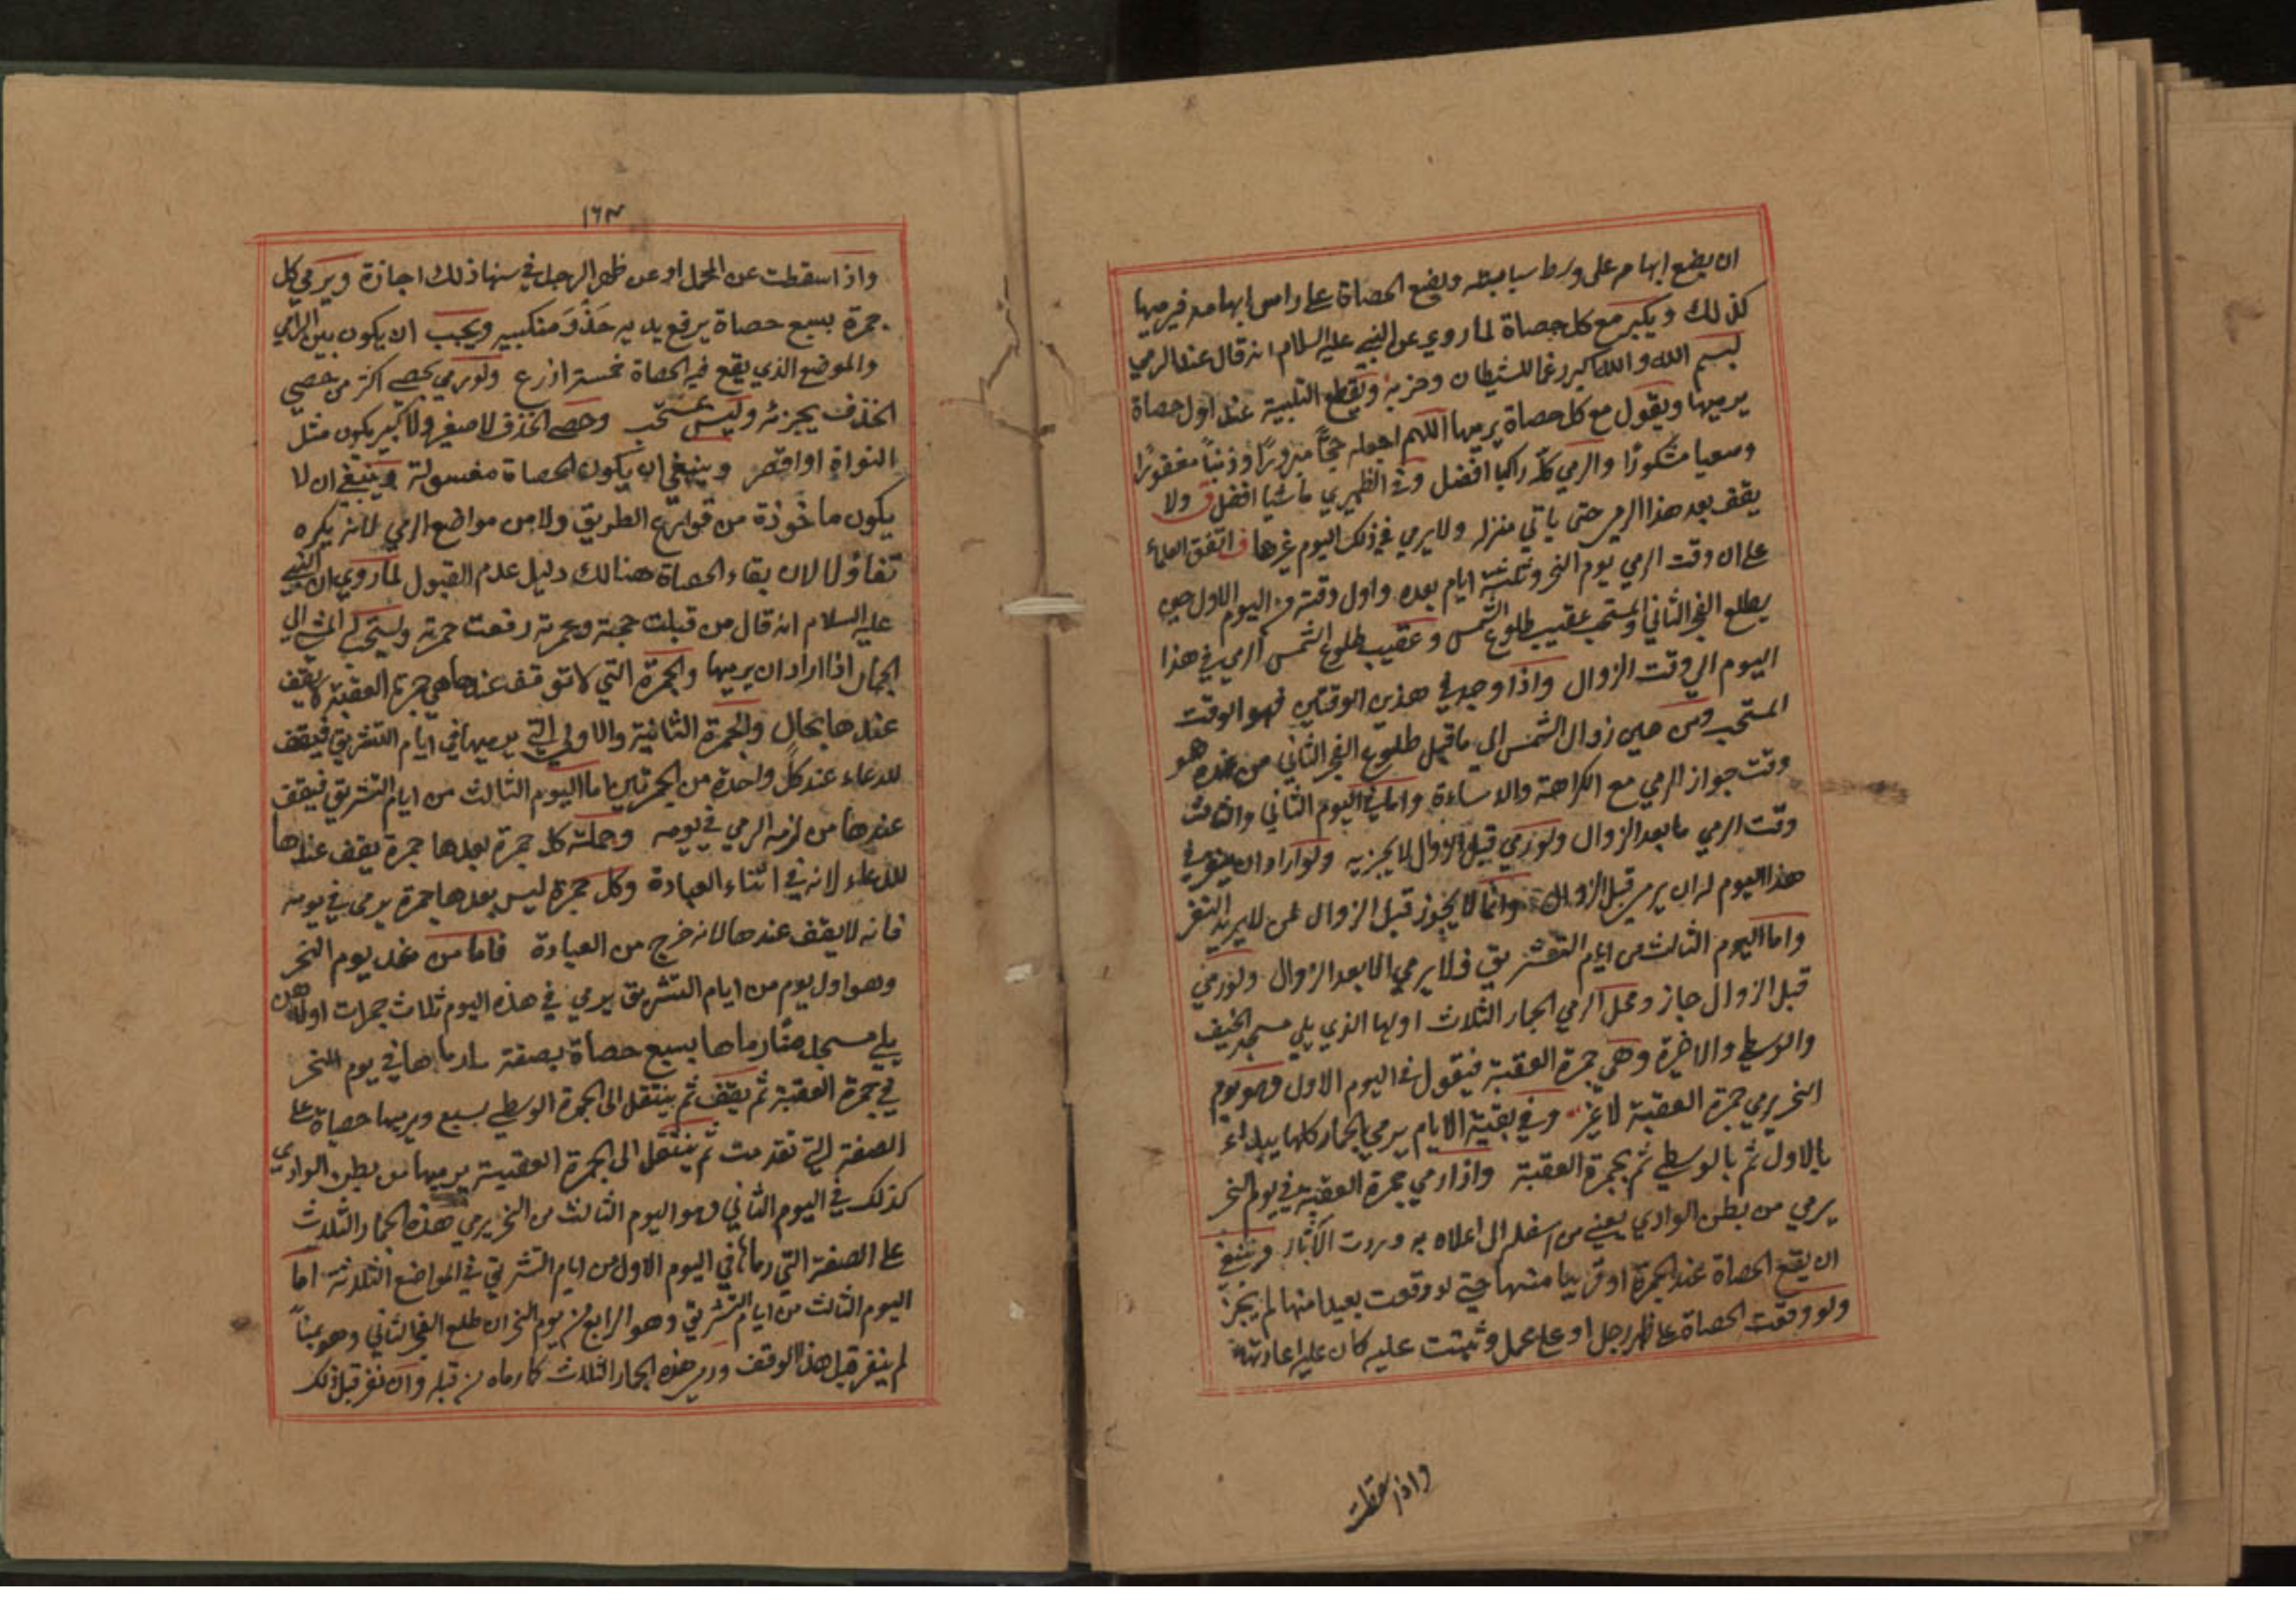 ان يضع ابهامه على وسط سبابته ويضع الحصاة على راس ابهامه فيرميها
كذلك ويكبر مع كل حصاة لما روي عن النبي عليه السلام انه قال عند الرمي
بسم الله والله اكبر رغما للشيطان وحزبه ويقطع التلبية عند اول حصاة
يرميها ويقول مع كل حصاة يرميها اللهم اجعله حجًّا مبرورًا وذنبًا مغفورًا
وسعيا مشكورًا والرمي كله راكبا افضل وفي الظهيري ماشيا افضل ف ولا
يقف بعد هذا الرمي حتى ياتي منزله ولا يرمي في ذلك اليوم غيرها ف اتفق العلماء
على ان وقت الرمي يوم النحر وثلثة ايام بعده واول وقته في اليوم الاول حين
يطلع الفجر الثاني والمستحب عقيب طلوع الشمس وعقيب طلوع الشمس الرمي في هذا
اليوم الي وقت الزوال واذا وجد في هذين الوقتين فهو الوقت
المستحب ومن حين زوال الشمس الي ما قبل طلوع الفجر الثاني من غده هو
وقت جواز الرمي مع الكراهة والاساءة واما في اليوم الثاني والثالث
وقت الرمي ما بعد الزوال ولو رمي قبل الزوال لا يجزيه ولو اراد ان ينفر في
هذا اليوم له ان يرمي قبل الزوال وانما لا يجوز قبل الزوال لمن لا يريد النفر
واما اليوم الثالث من ايام التشريق فلا يرمي الا بعد الزوال ولو رمي
قبل الزوال جاز ومحل الرمي الجمار الثلاث اولها الذي يلي مسجد الخيف
والوسطي والاخيرة وهي جمرة العقبة فيقول في اليوم الاول وهو يوم
النحر يرمي جمرة العقبة لا غير وفي بقية الايام يرمي الجمار كلها يبداء
بالاول ثم بالوسطي ثم بجمرة العقبة واذا رمي جمرة العقبة في يوم النحر
يرمي من بطن الوادي يعني من اسفله الى اعلاه به وردت الآثار وينبغي
ان يقع الحصاة عند الجمرة او قريبا منها حتي لو وقعت بعيدا منها لم يجز
ولو وقعت الحصاة على ظهر رجل او على محمل وثبتت عليه كان عليه اعادتها
واذا سقطت
١٦٣
واذا سقطت عن المحمل او عن ظهر الرجل في سنها ذلك اجازة ويرمي كل
جمرة بسبع حصاة يرفع يديه حذو منكبيه ويجب ان يكون بين الرامي
والموضع الذي يقع فيه الحصاة خمسة اذرع ولو رمي بحصي اكثر من حصي
الخذف يجزئه وليس بمستحب وحصي الخذف لا صغير ولا كبير يكون مثل
النواة او اقصر وينبغي ان يكون الحصاة مغسولة وينبغي ان لا
يكون ماخوذة من قوارع الطريق ولا من مواضع الرمي لانه يكره
تفاؤلا لان بقاء الحصاة هنالك دليل عدم القبول لما روي ان النبي
عليه السلام انه قال من قبلت حجته وعمرته رفعت جمرته ويستحب المشي الي
الجمار اذا اراد ان يرميها والجمرة التي لا توقف عندها هي جمرة العقبة لا يقف
عندها بحال والجمرة الثانية والاولي التي يرميها في ايام التشريق فيقف
للدعاء عند كل واحدة من الجمرتين اما اليوم الثالث من ايام التشريق فيقف
عندها من لزمه الرمي في يومه وجملته كل جمرة بعدها جمرة يقف عندها
للدعاء لانه في اثناء العبادة وكل جمرة ليس بعدها جمرة يرمي في يومه
فانه لا يقف عندها لانه خرج من العبادة فاما من غد يوم النحر
وهو اول يوم من ايام التشريق يرمي في هذه اليوم ثلاث جمرات اولهن
يلي مسجد منًا رماها بسبع حصاة بصفة ما رماها في يوم النحر
في جمرة العقبة ثم يقف ثم ينتقل الى الجمرة الوسطي بسبع ويرميها حصاة على
الصفة التي تقدمت ثم ينتقل الى الجمرة العقبية يرميها من بطن الوادي
كذلك في اليوم الثاني وهو اليوم الثالث من النحر يرمي هذه الجمار الثلاث
على الصفة التي رماها في اليوم الاول من ايام التشريق في المواضع الثلاثة اما
اليوم الثالث من ايام التشريق وهو الرابع من يوم النحر ان طلع الفجر الثاني وهو بمنًا
لم ينفر قبل هذا الوقف ورمي هذه الجمار الثلاث كما رماه من قبله وان نفر قبل ذلك